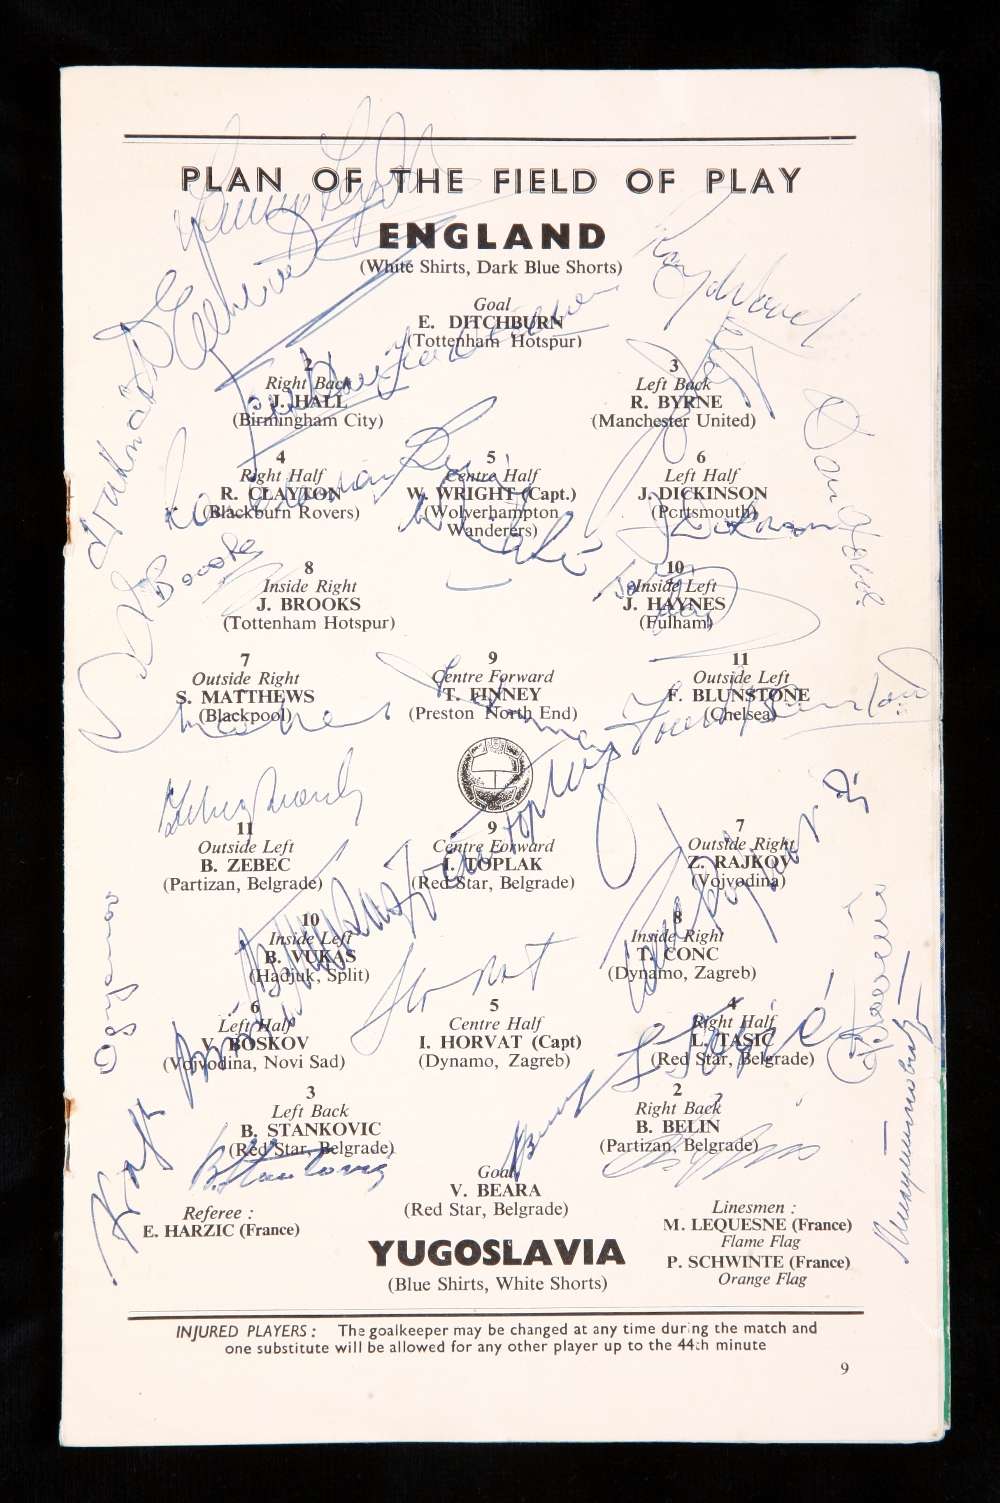 PLAN OF THE FIELD OF PLAY
ENGLAND
(White Shirts, Dark Blue Shorts)
Goal
E. DITCHBURN
(Tottenham Hotspur)
2
Right Back
J. HALL
(Birmingham City)
3
Left Back
R. BYRNE
(Manchester United)
4
Right Half
R. CLAYTON
(Blackburn Rovers)
5
Centre Half
W. WRIGHT (Capt.)
(Wolverhampton
Wanderers)
6
Left Half
J. DICKINSON
(Portsmouth)
8
Inside Right
J. BROOKS
(Tottenham Hotspur)
10
Inside Left
J. HAYNES
(Fulham)
7
Outside Right
S. MATTHEWS
(Blackpool)
9
Centre Forward
T. FINNEY
(Preston North End)
11
Outside Left
F. BLUNSTONE
(Chelsea)
11
Outside Left
B. ZEBEC
(Partizan, Belgrade)
9
Centre Forward
I. TOPLAK
(Red Star, Belgrade)
7
Outside Right
Z. RAJKOV
(Vojvodina)
10
Inside Left
B. VUKAS
(Hadjuk, Split)
8
Inside Right
T. CONC
(Dynamo, Zagreb)
6
Left Half
V. BOSKOV
(Vojvodina, Novi Sad)
5
Centre Half
I. HORVAT (Capt)
(Dynamo, Zagreb)
4
Right Half
L. TASIC
(Red Star, Belgrade)
3
Left Back
B. STANKOVIC
(Red Star, Belgrade)
2
Right Back
B. BELIN
(Partizan, Belgrade)
Goal
V. BEARA
(Red Star, Belgrade)
Referee :
E. HARZIC (France)
Linesmen :
M. LEQUESNE (France)
Flame Flag
P. SCHWINTE (France)
Orange Flag
YUGOSLAVIA
(Blue Shirts, White Shorts)
INJURED PLAYERS : The goalkeeper may be changed at any time during the match and
one substitute will be allowed for any other player up to the 44th minute
9
J Brooks
Horvat
B. Stankovic